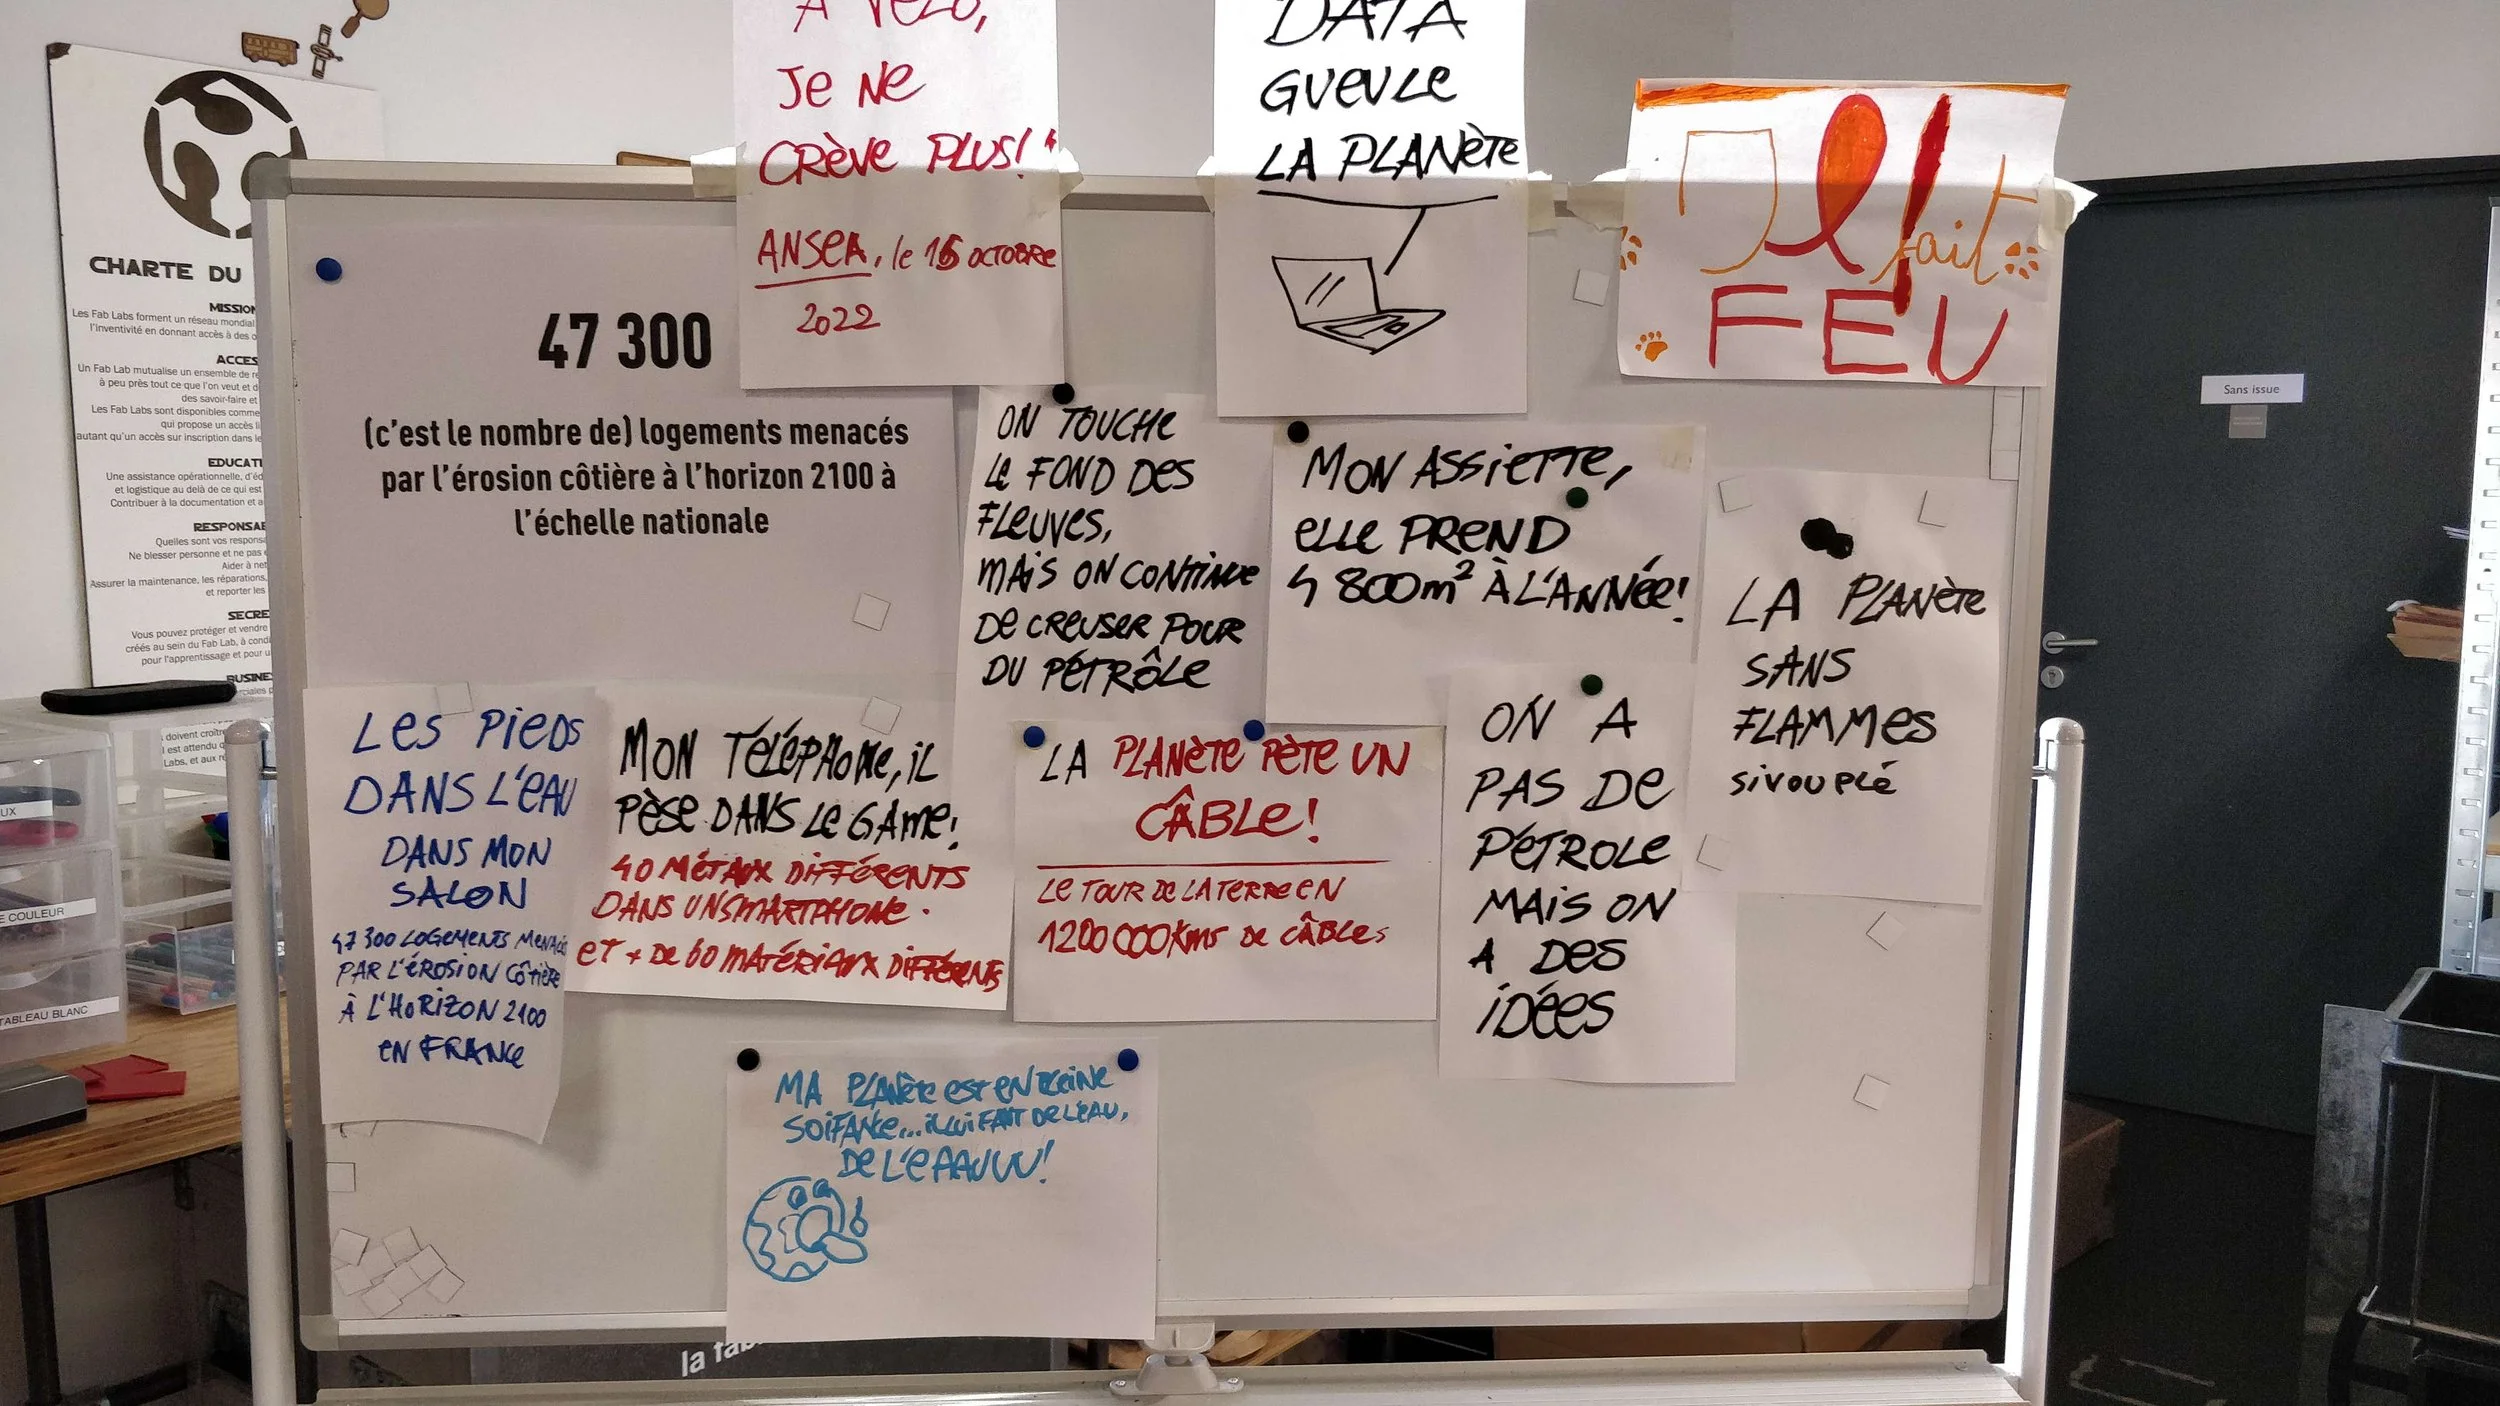 À VÉLO,
JE NE
CRÈVE PLUS! "
ANSEA, le 15 OCTOBRE
2022
DATA
GUEULE
LA PLANÈTE
Il fait
FEU
CHARTE DU
MISSION
Les Fab Labs forment un réseau mondial
l'inventivité en donnant accès à des
ACCES
Un Fab Lab mutualise un ensemble de
à peu près tout ce que l'on veut et
des savoir-faire et
Les Fab Labs sont disponibles comme
qui propose un accès
autant qu'un accès sur inscription dans le
EDUCATI
Une assistance opérationnelle, d'éd
et logistique au delà de ce qui est
Contribuer à la documentation et a
RESPONSA
Quelles sont vos respons
Ne blesser personne et ne pas
Aider à net
Assurer la maintenance, les réparations,
et reporter les
SECRE
Vous pouvez protéger et vendre
créés au sein du Fab Lab, à condi
pour l'apprentissage et pour u
BUSINE
rciales p
doivent croîtr
est attendu q
Labs, et aux r
47 300
(c'est le nombre de) logements menacés
par l'érosion côtière à l'horizon 2100 à
l'échelle nationale
ON TOUCHE
LE FOND DES
FLEUVES,
MAIS ON CONTINUE
DE CREUSER POUR
DU PÉTRÔLE
MON ASSIETTE,
ELLE PREND
4 800m² À L'ANNÉE!
LA PLANÈTE
SANS
FLAMMES
SIVOUPLÉ
Sans issue
LES PIEDS
DANS L'EAU
DANS MON
SALON
47 300 LOGEMENTS MENACÉS
PAR L'ÉROSION CÔTIÈRE
À L'HORIZON 2100
EN FRANCE
MON TÉLÉPHONE, IL
PÈSE DANS LE GAME!
40 MÉTAUX DIFFÉRENTS
DANS UN SMARTPHONE.
ET + DE 60 MATÉRIAUX DIFFÉRENTS
LA PLANÈTE PÈTE UN
CÂBLE!
LE TOUR DE LA TERRE EN
1200 000 KMS DE CÂBLES
ON A
PAS DE
PÉTROLE
MAIS ON
A DES
IDÉES
MA PLANÈTE EST EN PLEINE
SOIFANCE... IL LUI FAUT DE L'EAU,
DE L'EAAUUU!
UX
E COULEUR
TABLEAU BLANC
la fab